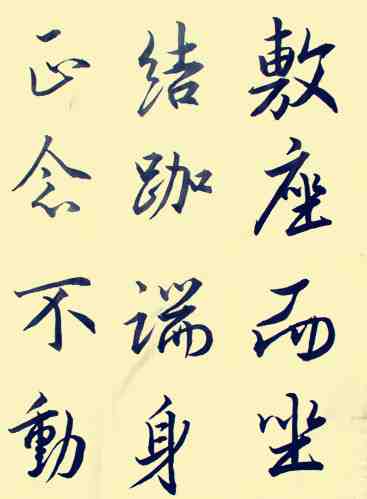 敷座而坐
結跏端身
正念不動